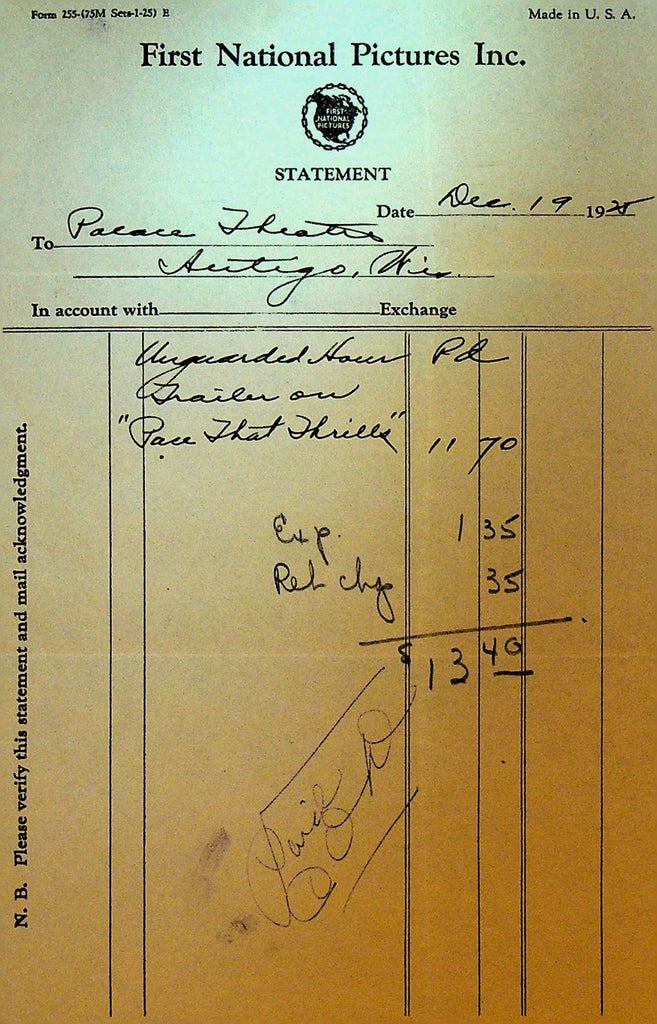 Form 255-(75M Sets-1-25) E
Made in U. S. A.
First National Pictures Inc.
FIRST
NATIONAL
PICTURES
STATEMENT
Date Dec. 19 1925
To Palace Theatre
Antigo, Wis.
In account with Exchange
Unguarded Hour Pd
Trailer on
"Pace That Thrills" 11 70
Exp. 1 35
Ret chg 35
$ 13 40
N. B. Please verify this statement and mail acknowledgment.